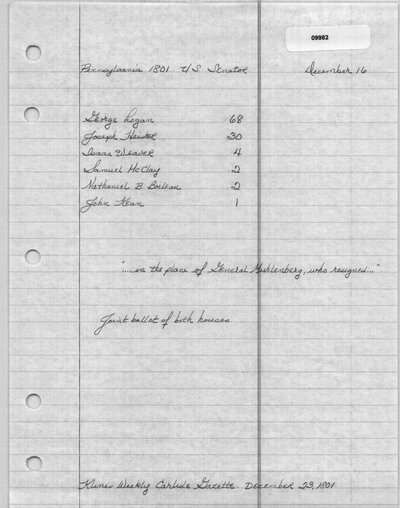 09982
Pennsylvania 1801 U.S. Senator December 16
George Logan 68
Joseph Heister 30
Isaac Weaver 4
Samuel McClay 2
Nathaniel B. Boileau 2
John Kean 1
"....in the place of General Muhlenberg, who resigned..."
Joint ballot of both houses
Klines Weekly Carlisle Gazette. December 23, 1801